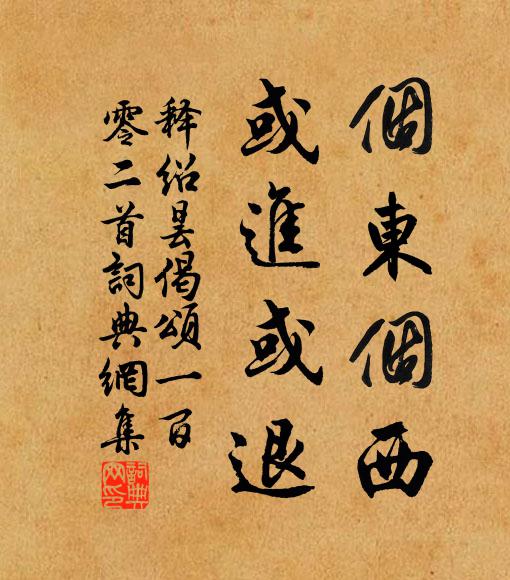 個東個西
或進或退
釋紹曇偈頌一百
零二首詞典網集
詞典網印